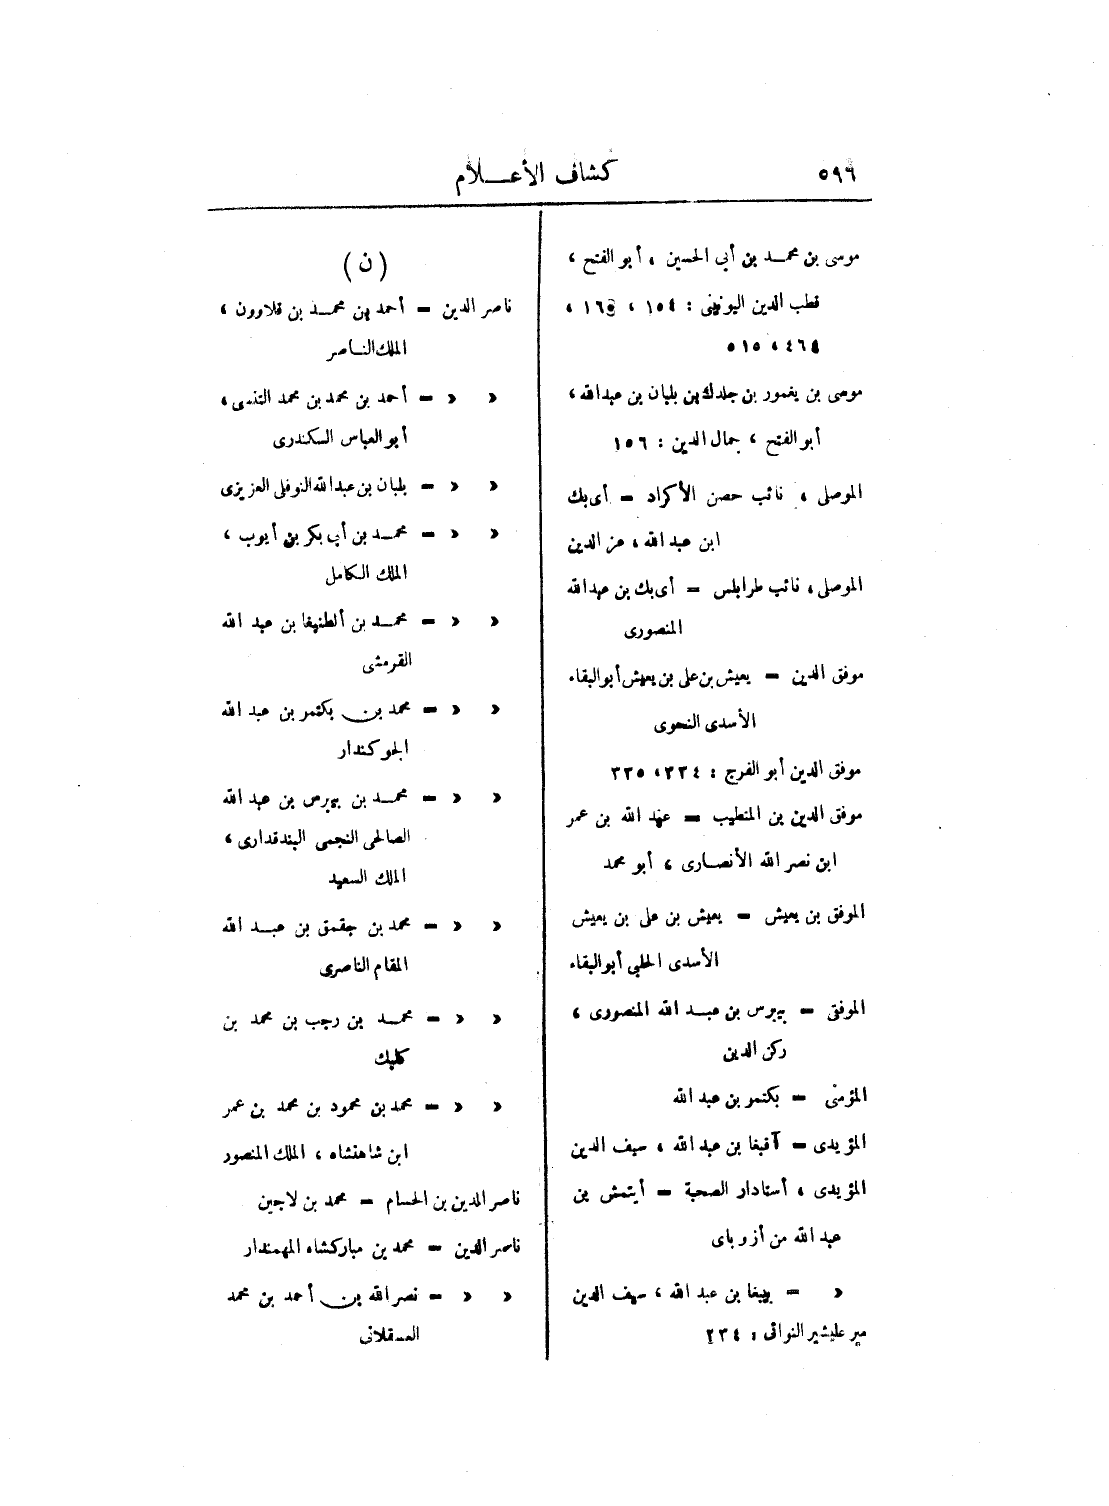 ٥٩٩ كشاف الأعـلام
موسى بن محمد بن أبى الحسين ، أبو الفتح ،
قطب الدين اليونينى : ١٥٤ ، ١٦٥ ،
٤٦٤ ، ٥١٥
موسى بن يغمور بن جلدك بن بلبان بن عبدالله ،
أبو الفتح ، جمال الدين : ١٥٦
الموصلى ، نائب حصن الأكراد = أى بك
ابن عبد الله ، عز الدين
الموصلى ، نائب طرابلس = أى بك بن عبدالله
المنصورى
موفق الدين = يعيش بن على بن يعيش أبو البقاء
الأسدى النحوى
موفق الدين أبو الفرج : ٣٣٤ ، ٣٣٥
موفق الدين بن المنطيب = عبد الله بن عمر
ابن نصر الله الأنصارى ، أبو محمد
الموفق بن يعيش = يعيش بن على بن يعيش
الأسدى الحلبى أبو البقاء
الموفقى = بيبرس بن عبد الله المنصورى ،
ركن الدين
المؤمنى = بكتمر بن عبد الله
المؤيدى = آقبغا بن عبد الله ، سيف الدين
المؤيدى ، أستادار الصحبة = أيتمش بن
عبد الله من أزوباى
« = بيبغا بن عبد الله ، سيف الدين
مير عليشير النوائى : ٢٣٤
( ن )
ناصر الدين = أحمد بن محمد بن قلاوون ،
الملك الناصر
« « = أحمد بن محمد بن محمد التنسى ،
أبو العباس السكندرى
« « = بلبان بن عبد الله النوفلى العزيزى
« « = محمد بن أبى بكر بن أيوب ،
الملك الكامل
« « = محمد بن ألطنبغا بن عبد الله
القرمشى
« « = محمد بن بكتمر بن عبد الله
الجوكندار
« « = محمد بن بيبرس بن عبد الله
الصالحى النجمى البندقدارى ،
الملك السعيد
« « = محمد بن جقمق بن عبد الله
المقام الناصرى
« « = محمد بن رجب بن محمد بن
كلبك
« « = محمد بن محمود بن محمد بن عمر
ابن شاهنشاه ، الملك المنصور
ناصر الدين بن الحسام = محمد بن لاجين
ناصر الدين = محمد بن مباركشاه المهمندار
« « = نصر الله بن أحمد بن محمد
العسقلانى